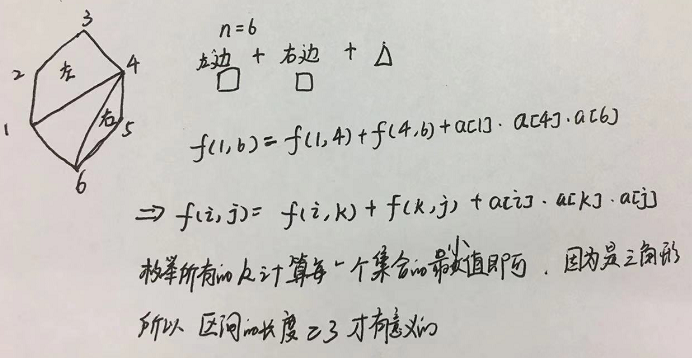 3
n=6
左边 + 右边 + △
2
左
4
□ □
1
右
5
6
f(1,6) = f(1,4) + f(4,6) + a[1]·a[4]·a[6]
⇒ f(i,j) = f(i,k) + f(k,j) + a[i]·a[k]·a[j]
枚举所有的k计算每一个集合的最小值即可，因为是三角形
所以 区间的长度≥3 才有意义的